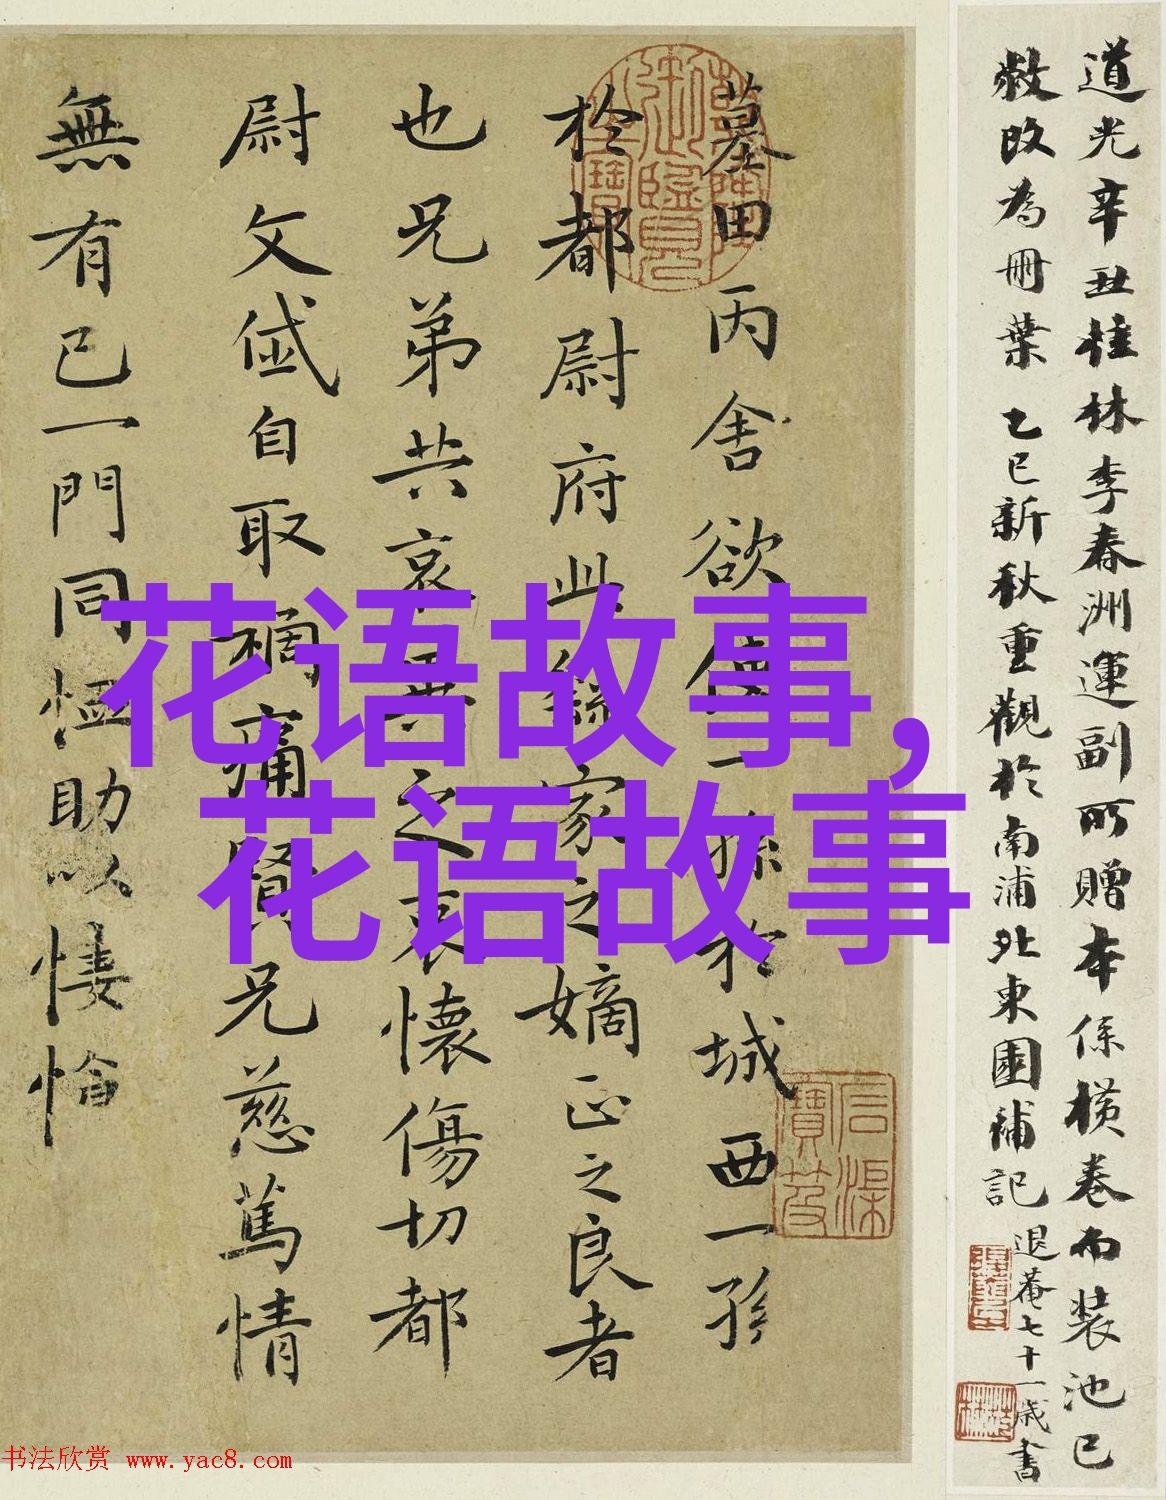 道光辛丑桂林李春洲運副所贈本係橫卷而裝池已
敝改為冊葉 乙巳新秋重觀於南浦北東園補記 退菴七十一歲書
墓田丙舍欲使一孫於城西一孫
於都尉府此繇家之嫡正之良者
也兄弟共哀異之哀懷傷切都
尉文俗自取禍痛賢兄慈篤情
無有已一門同恤助以悽愴
花语故事,
花语故事
书法欣赏 www.yac8.com